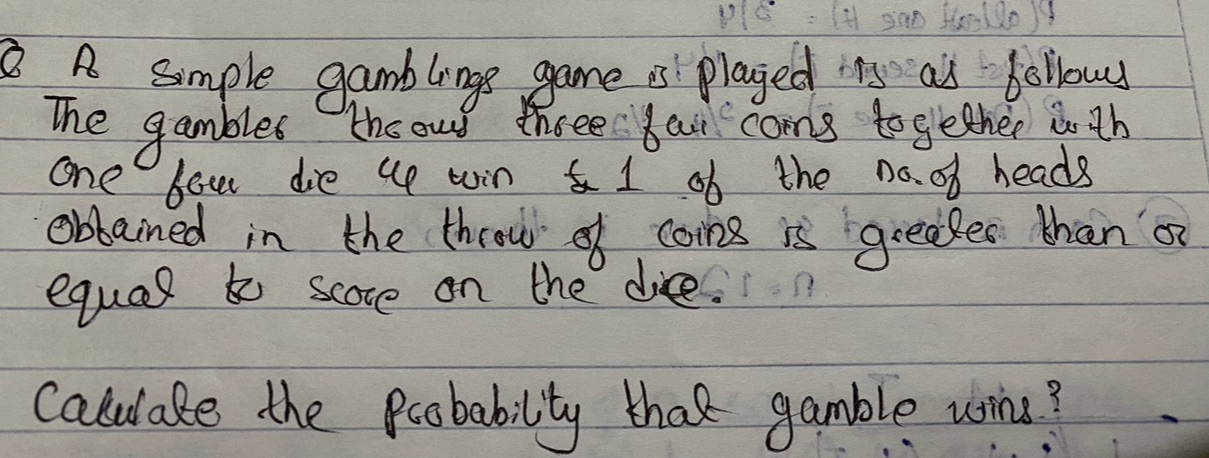 Q A simple gamblings game is played is as follows
The gambler throws three fair coins together with
one fair die & win £ 1 of the no. of heads
obtained in the throw of coins is greater than or
equal to score on the dice.
Calculate the Probability that gamble wins?